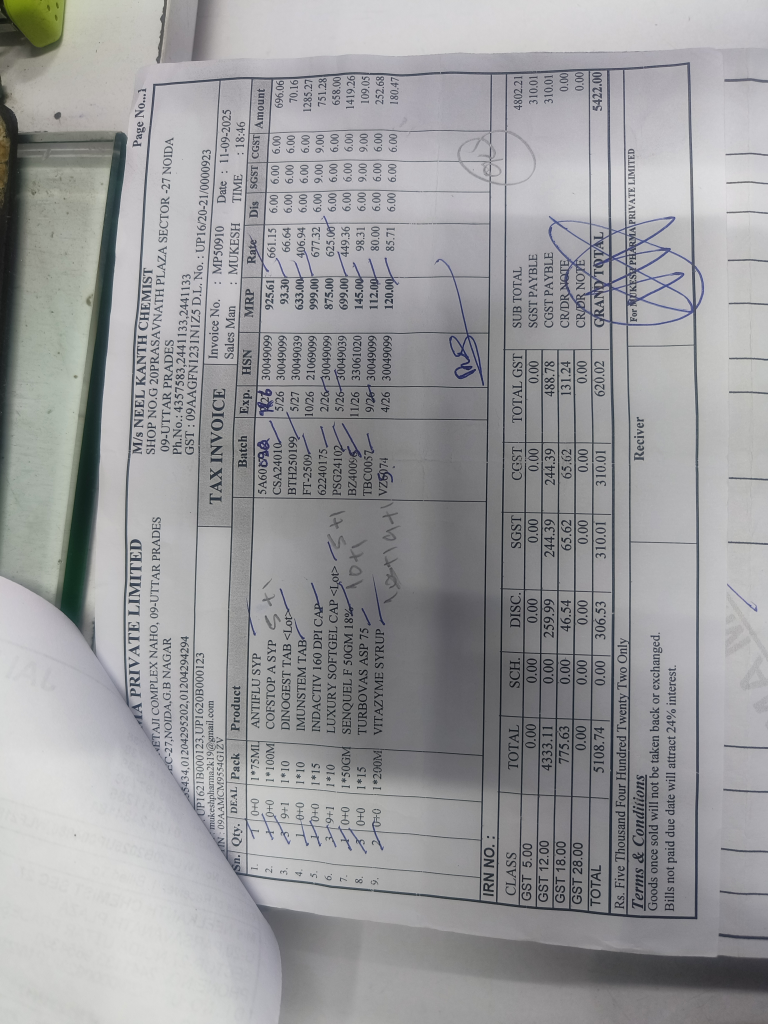 Page No...1
IA PRIVATE LIMITED
ETAJI COMPLEX NAHO, 09-UTTAR PRADES
EC-27,NOIDA,G.B NAGAR
5434,01204295202,01204294294
UP1621B000123,UP1620B000123
mukeshpharma2k19@gmail.com
09AAMCM9554G1ZV
M/s NEEL KANTH CHEMIST
SHOP NO.G 20PRASAVNATH PLAZA SECTOR -27 NOIDA
09-UTTAR PRADES
Ph.No.: 4357583,2441133,2441133
GST : 09AAGFN1231N1Z5 D.L. No. : UP16/20-21/0000923
TAX INVOICE
Invoice No. : MP50910 Date : 11-09-2025
Sales Man : MUKESH TIME : 18:46
Sn. Qty. DEAL Pack Product Batch Exp. HSN MRP Rate Dis SGST CGST Amount
1. 0+0 1*75ML ANTIFLU SYP 30049099 925.61 661.15 6.00 6.00 6.00 696.06
2. 0+0 1*100M COFSTOP A SYP 5+1 CSA24010 5/26 30049099 93.30 66.64 6.00 6.00 6.00 70.16
3. 9+1 1*10 DINOGEST TAB <Lot> BTH250199 5/27 30049039 633.00 406.94 6.00 6.00 6.00 1285.27
4. 0+0 1*10 IMUNSTEM TAB FT-2509 10/26 21069099 999.00 677.32 6.00 9.00 9.00 751.28
5. 0+0 1*15 INDACTIV 160 DPI CAP 62240175 2/26 30049099 875.00 625.00 6.00 6.00 6.00 658.00
6. 9+1 1*10 LUXURY SOFTGEL CAP <Lot> 5+1 PSG24102 5/26 30049039 699.00 449.36 6.00 6.00 6.00 1419.26
7. 0+0 1*50GM SENQUEL F 50GM 18% 10+1 11/26 33061020 145.00 98.31 6.00 9.00 9.00 109.05
8. 0+0 1*15 TURBOVAS ASP 75 TBC0057 9/26 30049099 112.00 80.00 6.00 6.00 6.00 252.68
9. 0+0 1*200M VITAZYME SYRUP 4/26 30049099 120.00 85.71 6.00 6.00 6.00 180.47
IRN NO. :
CLASS TOTAL SCH. DISC. SGST CGST TOTAL GST
GST 5.00 0.00 0.00 0.00 0.00 0.00 0.00
GST 12.00 4333.11 0.00 259.99 244.39 244.39 488.78
GST 18.00 775.63 0.00 46.54 65.62 65.62 131.24
GST 28.00 0.00 0.00 0.00 0.00 0.00 0.00
TOTAL 5108.74 0.00 306.53 310.01 310.01 620.02
SUB TOTAL 4802.21
SGST PAYBLE 310.01
CGST PAYBLE 310.01
CR/DR NOTE 0.00
CR/DR NOTE 0.00
GRAND TOTAL 5422.00
Rs. Five Thousand Four Hundred Twenty Two Only
Terms & Conditions
Goods once sold will not be taken back or exchanged.
Bills not paid due date will attract 24% interest.
Reciver
For MUKESH PHARMA PRIVATE LIMITED